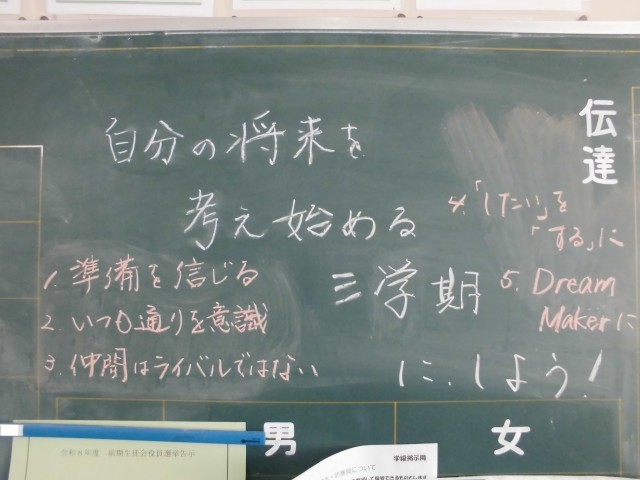 伝達
自分の将来を
考え始める
三学期
に.しよう!
1. 準備を信じる
2. いつも通りを意識
3. 仲間はライバルではない
4. 「したい」を
「する」に
5. Dream
Makerに
男
女
前期生徒会役員選挙告示
学級掲示用